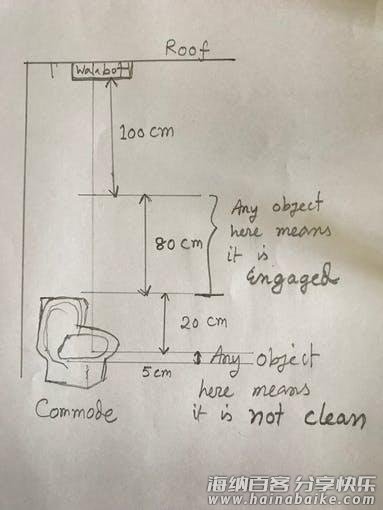 Roof
Walabot
100 cm
Any object
here means
it is
Engaged
80 cm
20 cm
Any object
5 cm
here means
it is not clean
Commode
海纳百客 分享快乐
www.hainabaike.com